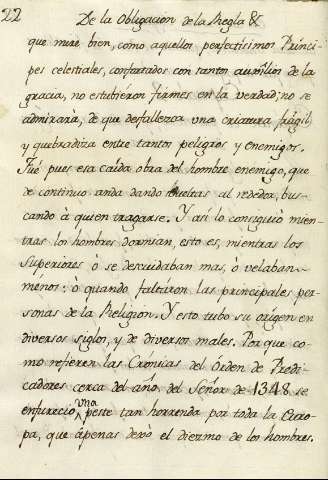 22 De la Obligacion de la Regla &
que mire bien, como aquellos perfectisimos Princi-
pes celestiales, confortados con tantos auxîlios de la
gracia, no estubiéron firmes en la verdad; no se
admirará, de que desfallezca una criatura frágil,
y quebradiza entre tantos peligros y enemigos.
Fué pues esa caída obra del hombre enemigo, que
de continuo anda dando vueltas al rededor, bus-
cando à quien tragarse. Y asi lo consiguió mien-
tras los hombres dormian, esto es, mientras los
Superiores ò se descuidaban mas, ò velaban
menos: ò quando faltáron las principales per-
sonas de la Religion. Y esto tubo su orígen en
diversos siglos, y de diversos males. Porque co-
mo refieren las Crónicas del Órden de Predi-
cadores cerca del año del Señor de 1348 se
enfureció una peste tan horrenda por toda la Euro-
pa, que apenas dexó el diezmo de los hombres.